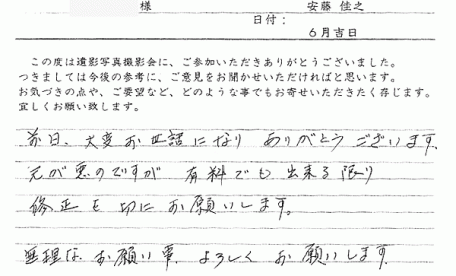 様 安藤 佳之
日付:
6月吉日
この度は遺影写真撮影会に、ご参加いただきありがとうございました。
つきましては今後の参考に、ご意見をお聞かせいただければと思います。
お気づきの点や、ご要望など、どのような事でもお寄せいただきたく存じます。
宜しくお願い致します。
前日、大変お世話になり ありがとうございます。
元が悪のですが 有料でも 出来る限り
修正を切にお願いします。
無理な お願い事、よろしく お願いします。